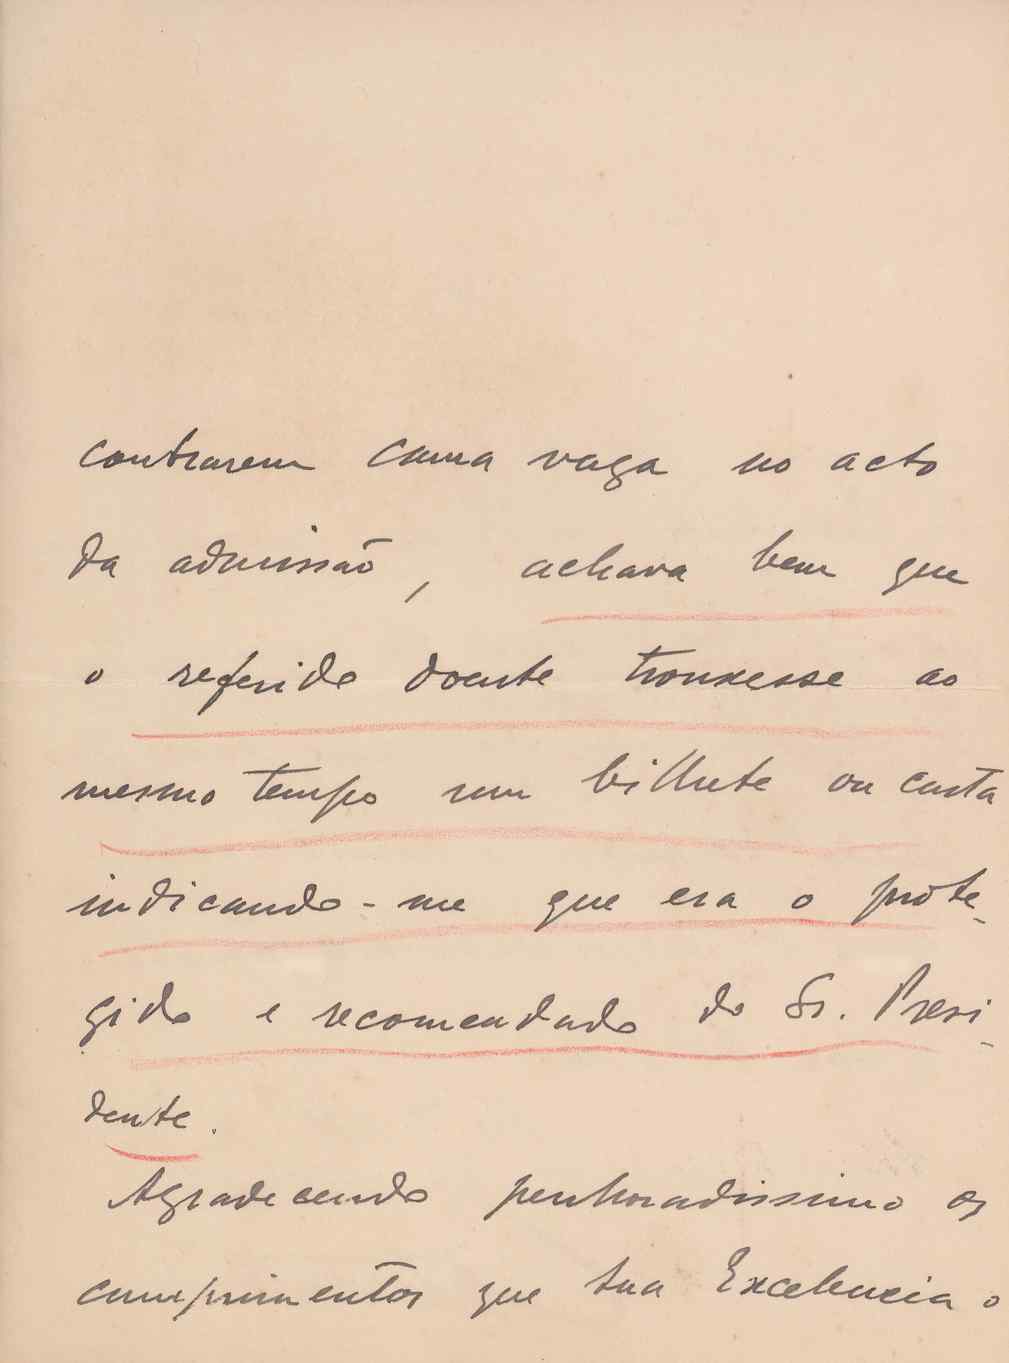 contrarem cama vaga no acto
da admissão, achava bem que
o referido doente trouxesse ao
mesmo tempo um bilhete ou carta
indicando-me que era o prote-
gido e recomendado do Sr. Presi-
dente.
Agradecendo penhoradissimo os
cumprimentos que sua Excelencia o